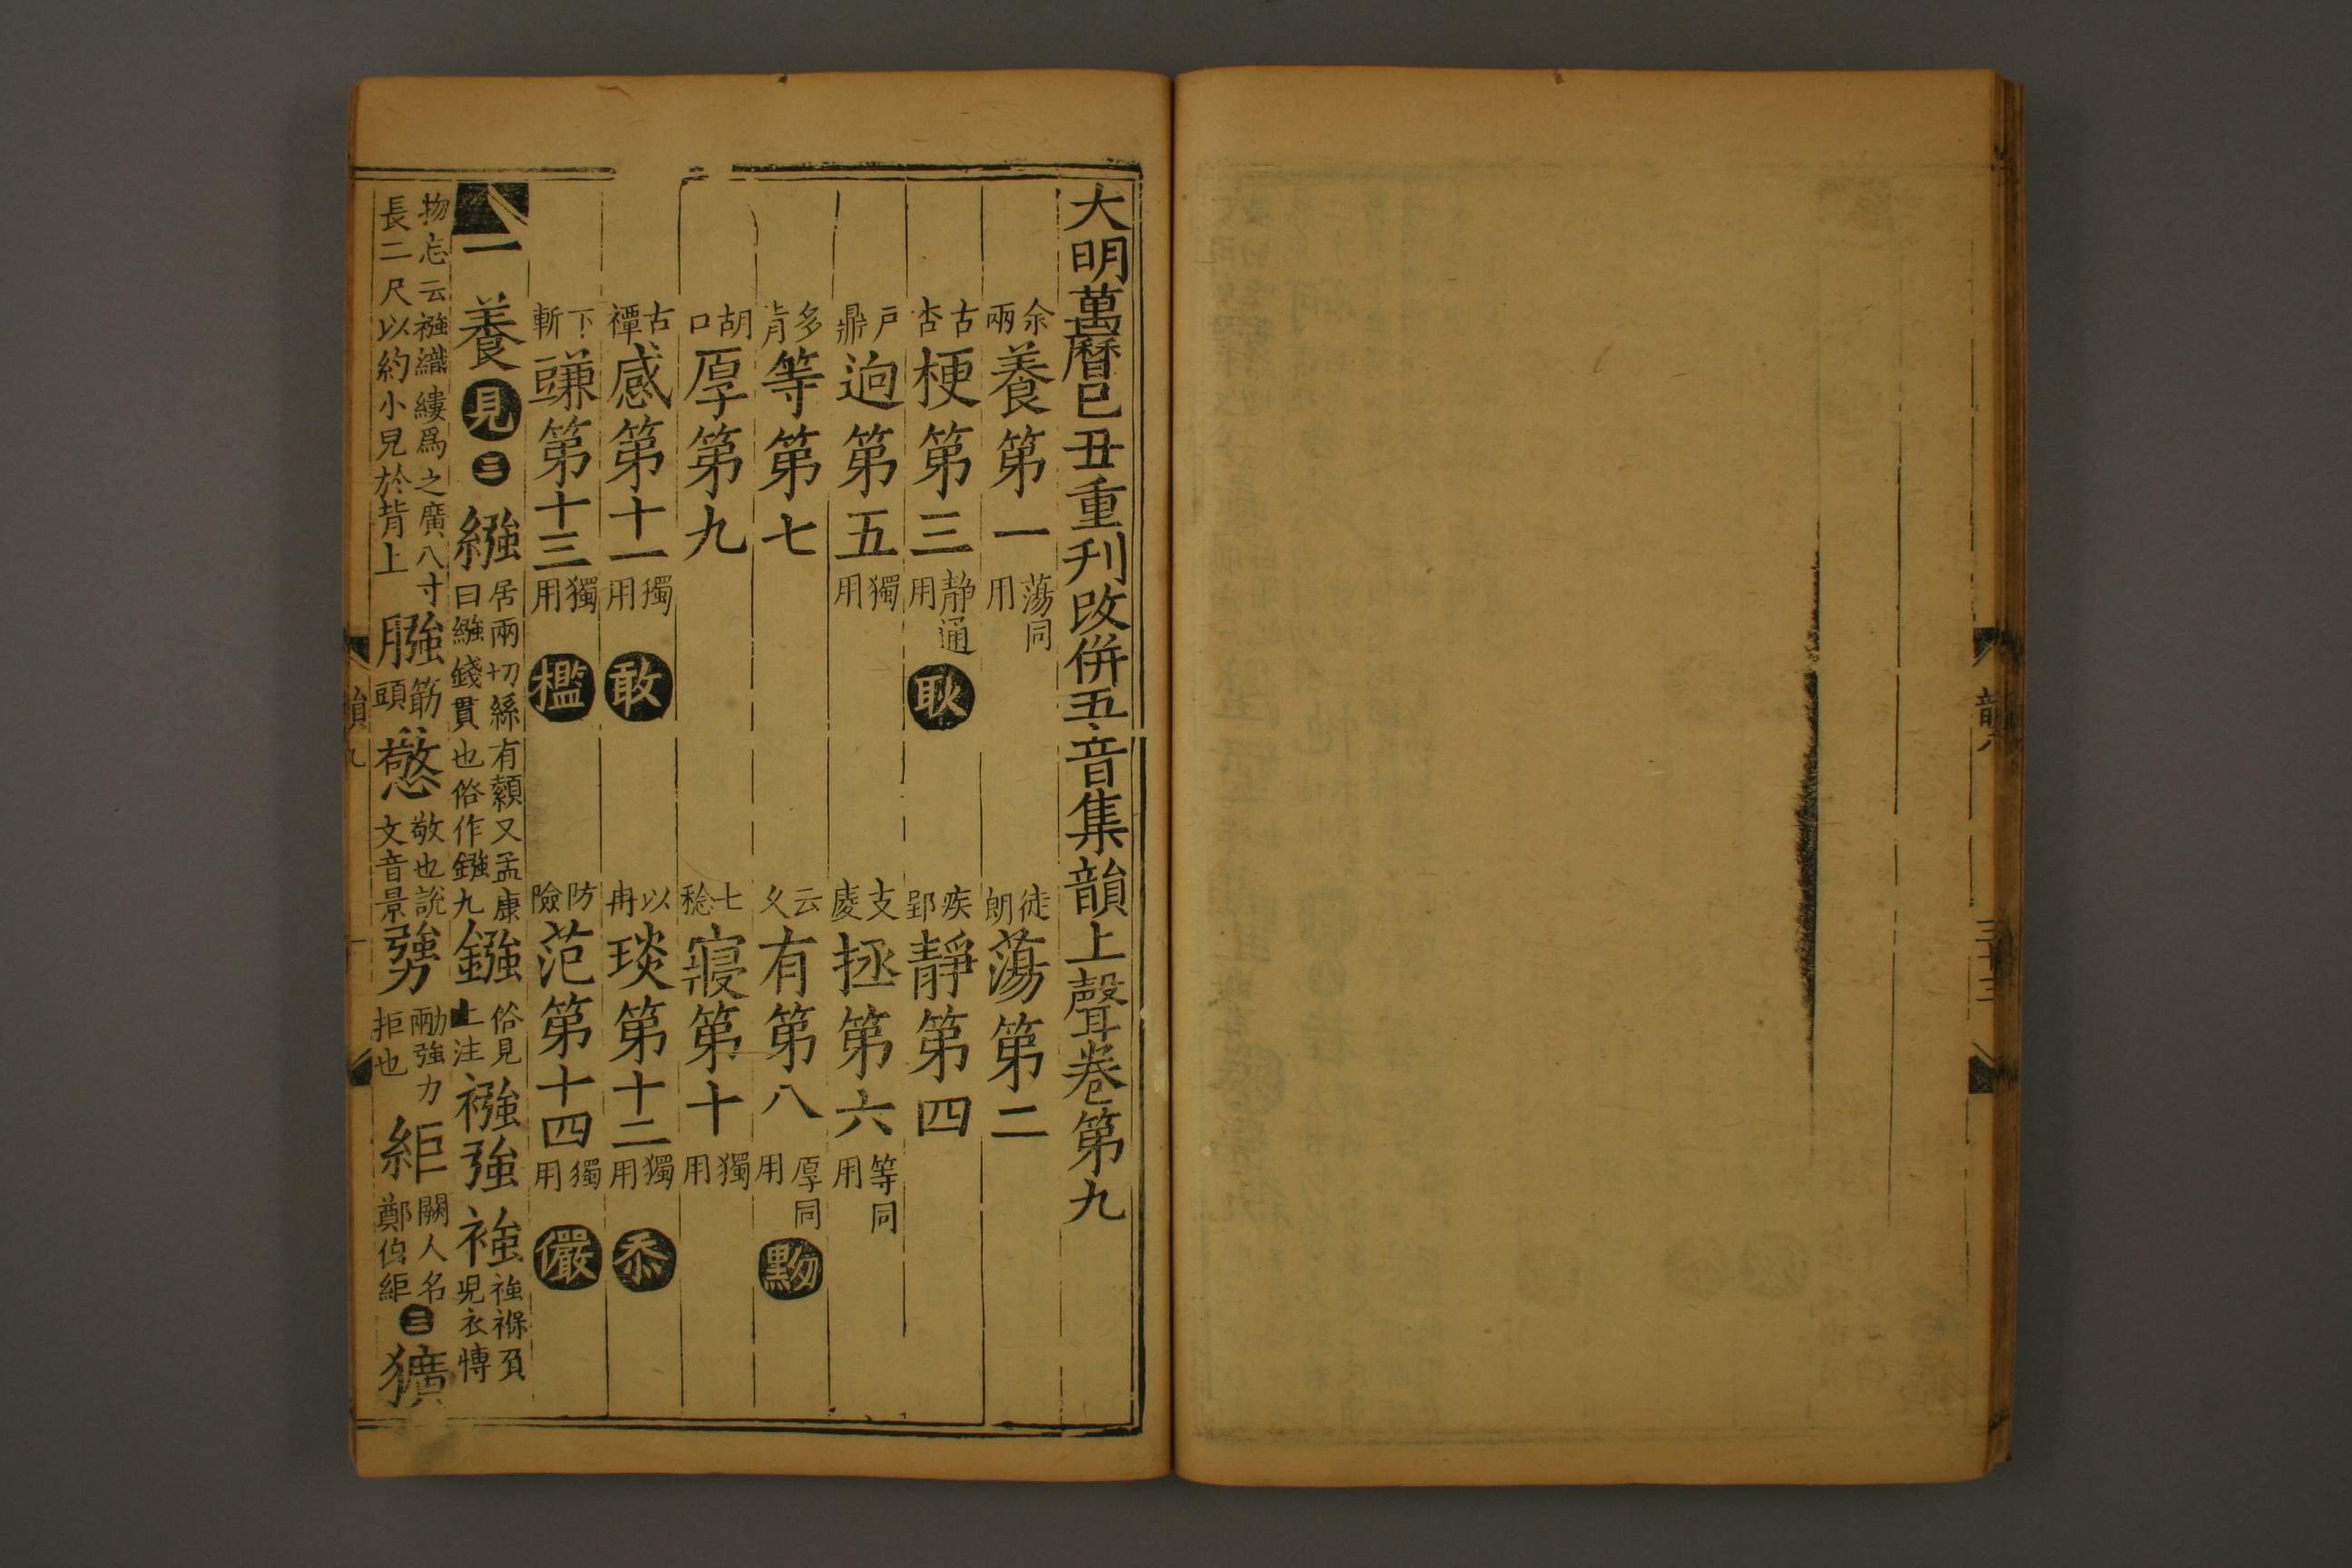 大明萬曆已丑重刋改併五音集韻上聲卷第九
余兩養第一蕩同用 徒朗蕩第二
古杏梗第三靜通用 耿 疾郢靜第四
戸鼎迥第五獨用 支庱拯第六等同用
多肯等第七 云久有第八厚同用 黝
胡口厚第九 七稔寑第十獨用
古禫感第十一獨用 敢 以冉琰第十二獨用 忝
下斬豏第十三獨用 檻 防險范第十四獨用 儼
一養見三繈居兩切絲有纇又孟康曰繦錢貫也俗作鏹九鏹俗見上注襁強䘯䘯褓負皃衣博
物志云襁織縷爲之廣八寸長二尺以約小兒於背上膙筋頭憼敬也說文音景勥勈強力拒也䋌闕人名鄭伯䋌二獷
韻九
韻八
三十三